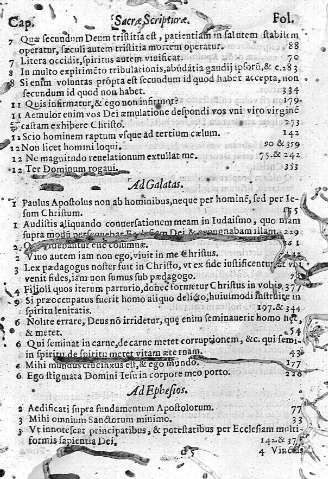 Cap. Sacræ Scripturæ. Fol.
7 Quæ secundum Deum tristitia est, patientiam in salutem stabilem
operatur, sæculi autem tristitia mortem operatur. 88
7 Litera occidit, spiritus autem viuificat. 70
8 In multo expirimẽto tribulationis, abũdãtia gaudij ipsorũ, & c. 283
8 Si enim voluntas prõpta est secundum id quod habet accepta, non
secundum id quod non habet. 334
11 Quis infirmatur, & ego non infirmor? 179.
11 Aemulor enim vos Dei æmulatione despondi vos vni viro virginẽ
castam exhibere Christo. 273
12 Scio hominem raptum vsque ad tertium cælum. 142
12 Non licet homini loqui. 90 & 359
12 Ne magnitudo reuelationum extullat me. 75. & 242
12 Ter Dominum rogaui. 353
Ad Galatas.
1 Paulus Apostolus non ab hominibus, neque per hominẽ, sed per Ie-
sum Christum.
1 Audistis aliquando conuersationem meam in Iudaismo, quoniam
supra modũ persequebar Ecclesiam Dei & expugnabam illam. 229
2 columnæ.
2 Viuo autem iam non ego, viuit in me Christus.
3 Lex pædagogus noster fuit in Christo, vt ex fide iustificemur, at vbi
venit fides, iam non sumus sub pædagogo.
4 Filioli quos iterum parturio, donec formetur Christus in vobis. 377
6 Si præoccupatus fuerit homo aliquo delicto, huiusmodi instruite in
spiritu lenitatis. 197. & 344
6 Nolite errare, Deus nõ irridetur, quę enim seminauerit homo hæc,
& metet. 54
6 Qui seminat in carne, de carne metet corruptionem, &c. qui semi-
in spiritu de spiritu metet vitam æternam. 43
6 Mihi mundus crucixus est, & ego mundo. 177
6 Ego stigmata Domini Iesu in corpore meo porto. 226
Ad Ephesios.
2 Aedificati supra fundamentum Apostolorum. 77
3 Mihi omnium Sanctorum minimo. 33
3 Vt innotescat principatibus, & potestatibus per Ecclesiam multi-
formis sapientia Dei. 142. & 375
4 Vincels